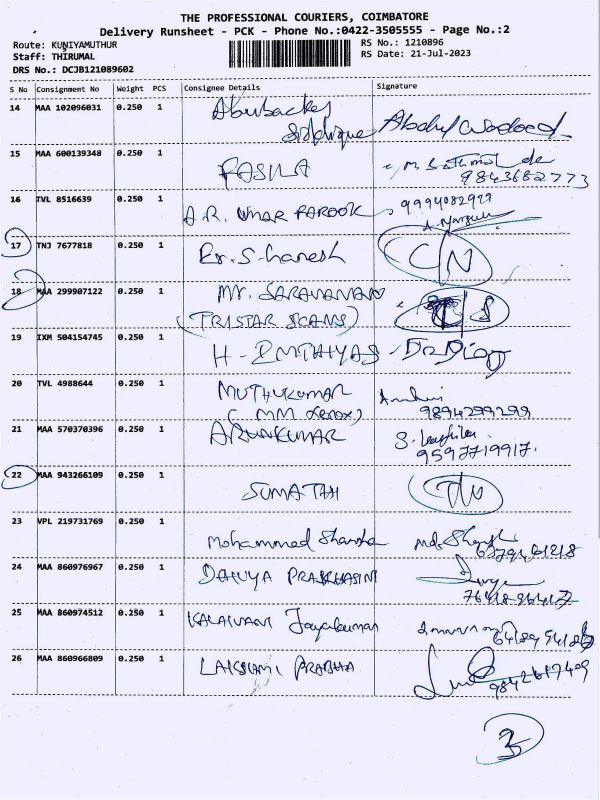 THE PROFESSIONAL COURIERS, COIMBATORE
Delivery Runsheet - PCK - Phone No.:0422-3505555 - Page No.:2
Route: KUNIYAMUTHUR RS No.: 1210896
Staff: THIRUMAL RS Date: 21-Jul-2023
DRS No.: DCJB121089602
S No Consignment No Weight PCS Consignee Details Signature
14 MAA 102096031 0.250 1 Abubacker
Siddhique Abdul Wadood
15 MAA 600139348 0.250 1 FASILA
9843682773
16 TVL 8516639 0.250 1 A.R. UMAR FAROOK 9994082929
17 TNJ 7677818 0.250 1 Er. S. hanesh C/N
18 MAA 299907122 0.250 1 Mr. SARAVANAN
(TRISTAR SCANS)
19 IXM 504154745 0.250 1 H. IMTHIYAS
20 TVL 4988644 0.250 1 MUTHUKUMAR
(MM Xerox) 9894299299
21 MAA 570370396 0.250 1 ARUNKUMAR
9597719917.
22 MAA 943266109 0.250 1 SUMATHI
23 VPL 219731769 0.250 1 Mohammed Md.
24 MAA 860976967 0.250 1 DHIVYA PRAKHASINI
25 MAA 860974512 0.250 1 KALAIVANI Jayakumar
26 MAA 860966809 0.250 1 LAKSHMI PRABHA
9842617409
3